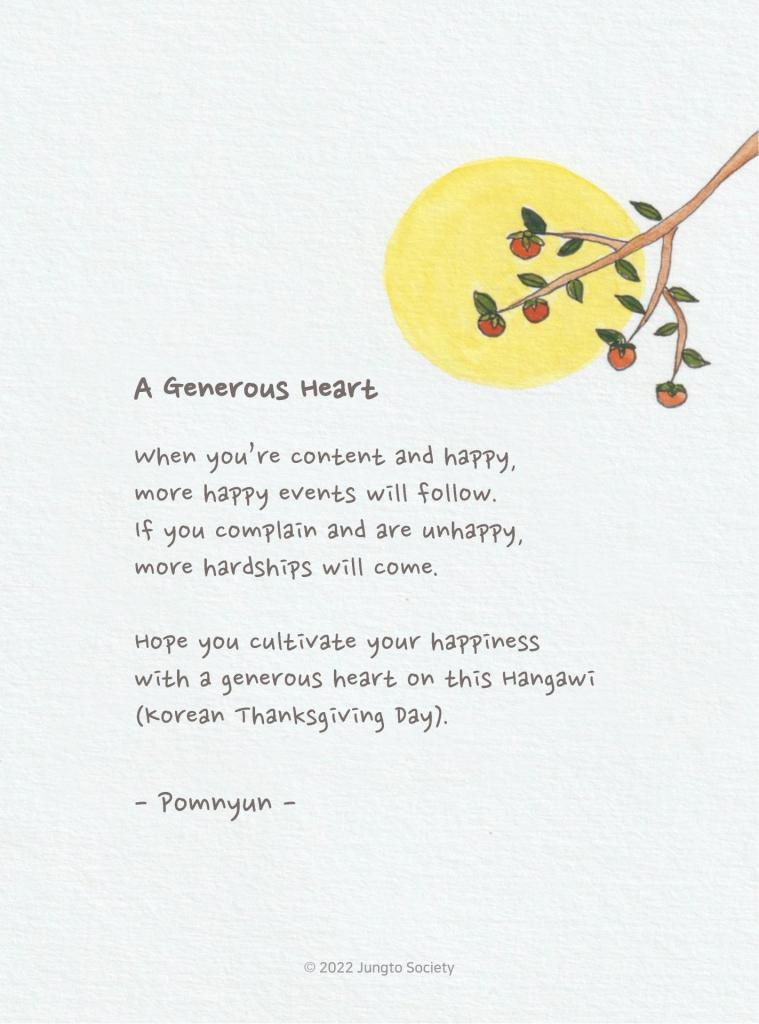 A Generous Heart
When you're content and happy,
more happy events will follow.
If you complain and are unhappy,
more hardships will come.
Hope you cultivate your happiness
with a generous heart on this Hangawi
(Korean Thanksgiving Day).
- Pomnyun -
© 2022 Jungto Society